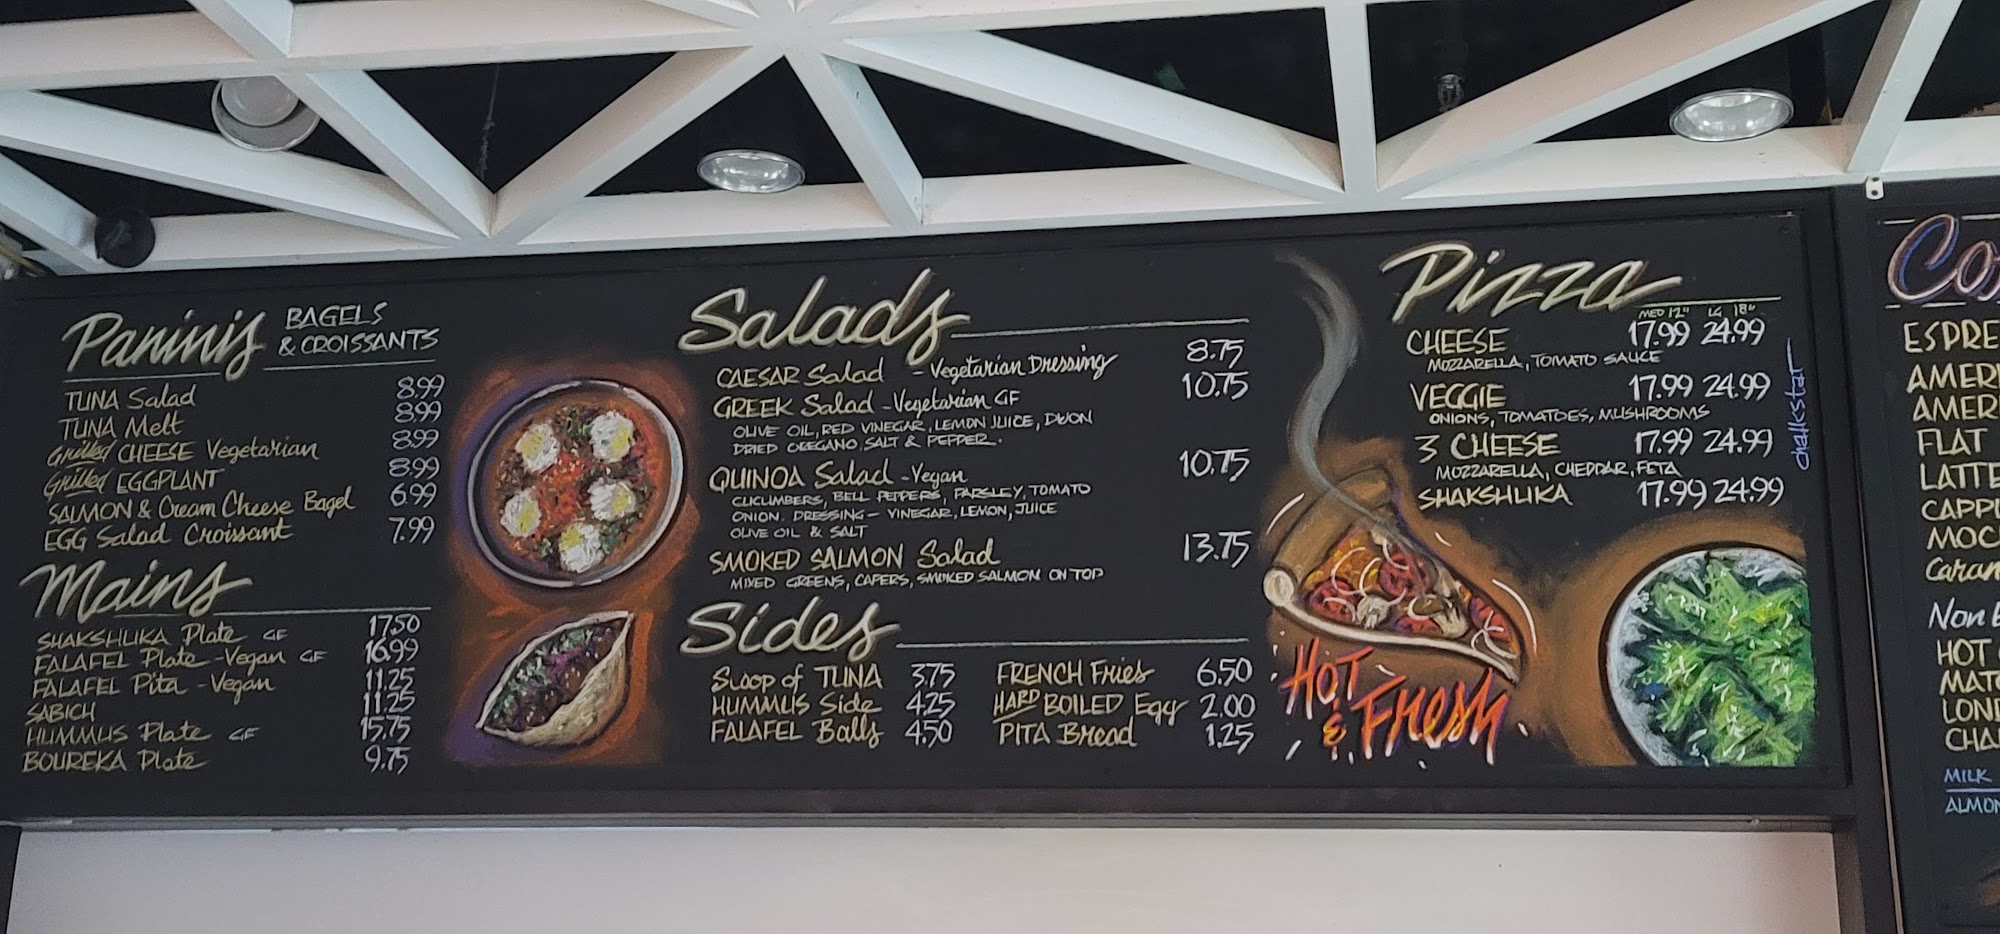 Paninis BAGELS
& CROISSANTS
TUNA Salad 8.99
TUNA Melt 8.99
Grilled CHEESE Vegetarian 8.99
Grilled EGGPLANT 8.99
SALMON & Cream Cheese Bagel 6.99
EGG Salad Croissant 7.99
Mains
SHAKSHUKA Plate GF 17.50
FALAFEL Plate - Vegan GF 16.99
FALAFEL Pita - Vegan 11.25
SABICH 11.25
HUMMUS Plate GF 15.75
BOUREKA Plate 9.75
Salads
CAESAR Salad - Vegetarian Dressing 8.75
GREEK Salad - Vegetarian GF 10.75
OLIVE OIL, RED VINEGAR, LEMON JUICE, DIJON
DRIED OREGANO, SALT & PEPPER.
QUINOA Salad - Vegan 10.75
CUCUMBERS, BELL PEPPERS, PARSLEY, TOMATO
ONION. DRESSING - VINEGAR, LEMON, JUICE
OLIVE OIL & SALT
SMOKED SALMON Salad 13.75
MIXED GREENS, CAPERS, SMOKED SALMON ON TOP
Sides
Scoop of TUNA 3.75
HUMMUS Side 4.25
FALAFEL Balls 4.50
FRENCH Fries 6.50
HARD BOILED Egg 2.00
PITA Bread 1.25
Pizza
MED 12" LG 18"
CHEESE 17.99 24.99
MOZZARELLA, TOMATO SAUCE
VEGGIE 17.99 24.99
ONIONS, TOMATOES, MUSHROOMS
3 CHEESE 17.99 24.99
MOZZARELLA, CHEDDAR, FETA
SHAKSHUKA 17.99 24.99
HOT
& Fresh
chalkstar
Co
ESPRE
AMERI
AMER
FLAT
LATTE
CAPPU
MOC
Caram
Non
HOT
MATC
LOND
CHAI
MILK
ALMON